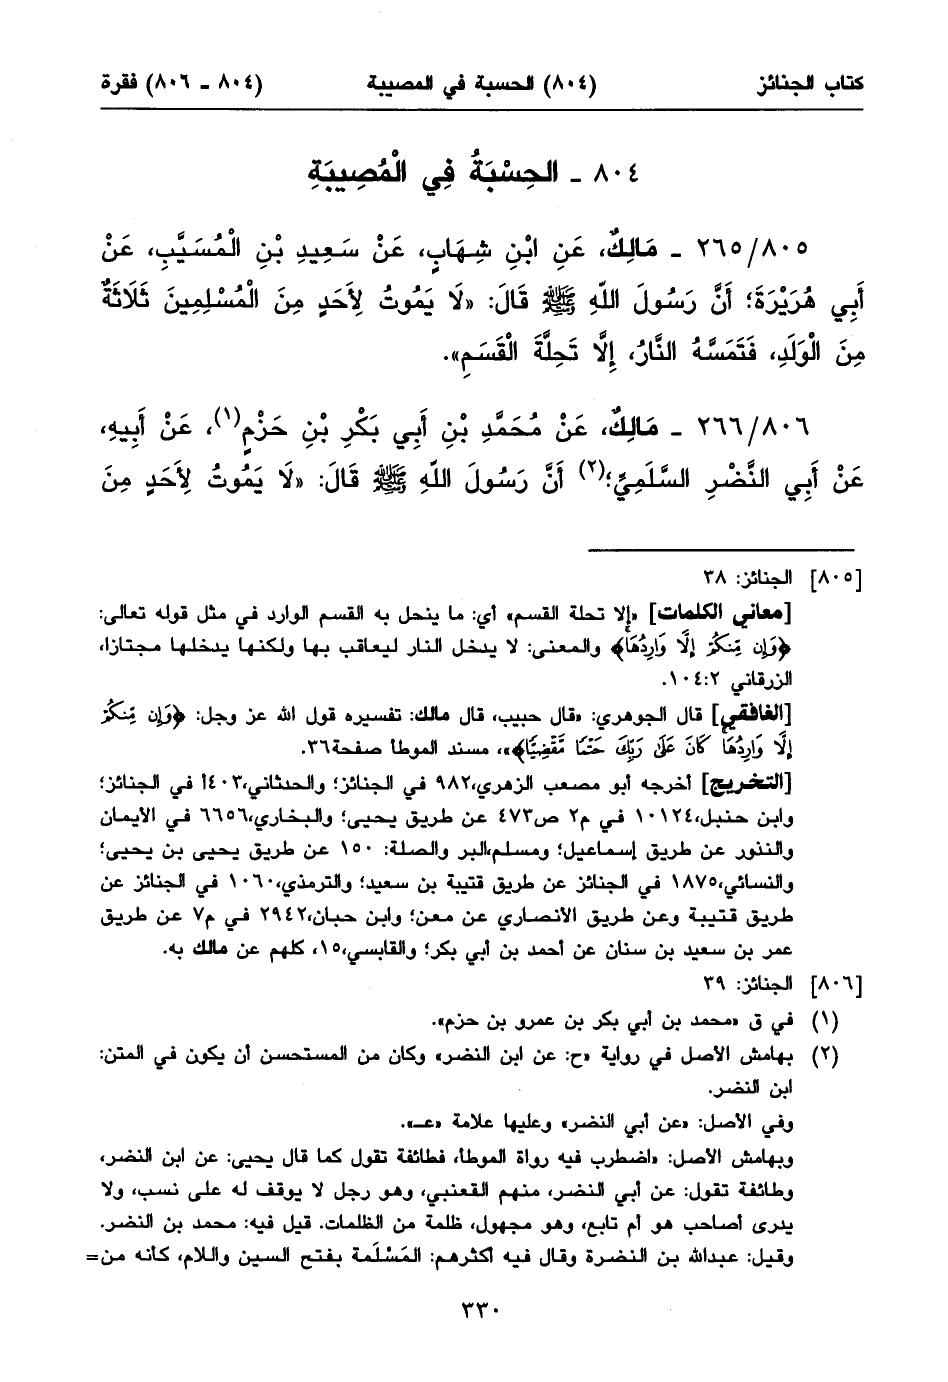 كتاب الجنائز (٨٠٤) الحسبة في المصيبة (٨٠٤ - ٨٠٦) فقرة
٨٠٤ - الحِسْبَةُ فِي الْمُصِيبَةِ
٢٦٥/٨٠٥ - مَالِكٌ، عَنِ ابْنِ شِهَابٍ، عَنْ سَعِيدِ بْنِ الْمُسَيَّبِ، عَنْ
أَبِي هُرَيْرَةَ؛ أَنَّ رَسُولَ اللّٰهِ ﷺ قَالَ: «لَا يَمُوتُ لِأَحَدٍ مِنَ الْمُسْلِمِينَ ثَلَاثَةٌ
مِنَ الْوَلَدِ، فَتَمَسَّهُ النَّارُ، إِلَّا تَحِلَّةَ الْقَسَمِ».
٢٦٦/٨٠٦ - مَالِكٌ، عَنْ مُحَمَّدِ بْنِ أَبِي بَكْرِ بْنِ حَزْمٍ(١)، عَنْ أَبِيهِ،
عَنْ أَبِي النَّضْرِ السَّلَمِيِّ؛(٢) أَنَّ رَسُولَ اللّٰهِ ﷺ قَالَ: «لَا يَمُوتُ لِأَحَدٍ مِنَ
[٨٠٥] الجنائز: ٣٨
[معاني الكلمات] «إلا تحلة القسم» أي: ما ينحل به القسم الوارد في مثل قوله تعالى:
﴿وَإِن مِّنكُمْ إِلَّا وَارِدُهَا﴾ والمعنى: لا يدخل النار ليعاقب بها ولكنها يدخلها مجتازا،
الزرقاني ١٠٤:٢.
[الغافقي] قال الجوهري: «قال حبيب، قال مالك: تفسيره قول الله عز وجل: ﴿وَإِن مِّنكُمْ
إِلَّا وَارِدُهَا كَانَ عَلَىٰ رَبِّكَ حَتْمًا مَّقْضِيًّا﴾»، مسند الموطأ صفحة٣٦.
[التخريج] أخرجه أبو مصعب الزهري،٩٨٢ في الجنائز؛ والحدثاني،٤٠٣أ في الجنائز؛
وابن حنبل،١٠١٢٤ في م٢ ص٤٧٣ عن طريق يحيى؛ والبخاري،٦٦٥٦ في الأيمان
والنذور عن طريق إسماعيل؛ ومسلم،البر والصلة: ١٥٠ عن طريق يحيى بن يحيى؛
والنسائي،١٨٧٥ في الجنائز عن طريق قتيبة بن سعيد؛ والترمذي،١٠٦٠ في الجنائز عن
طريق قتيبة وعن طريق الأنصاري عن معن؛ وابن حبان،٢٩٤٢ في م٧ عن طريق
عمر بن سعيد بن سنان عن أحمد بن أبي بكر؛ والقابسي،١٥، كلهم عن مالك به.
[٨٠٦] الجنائز: ٣٩
(١) في ق «محمد بن أبي بكر بن عمرو بن حزم».
(٢) بهامش الأصل في رواية «ح: عن ابن النضر» وكان من المستحسن أن يكون في المتن:
ابن النضر.
وفي الأصل: «عن أبي النضر» وعليها علامة «عـ».
وبهامش الأصل: «اضطرب فيه رواة الموطأ، فطائفة تقول كما قال يحيى: عن ابن النضر،
وطائفة تقول: عن أبي النضر، منهم القعنبي، وهو رجل لا يوقف له على نسب، ولا
يدرى أصاحب هو أم تابع، وهو مجهول، ظلمة من الظلمات. قيل فيه: محمد بن النضر.
وقيل: عبدالله بن النضرة وقال فيه أكثرهم: المَسْلَمة بفتح السين واللام، كأنه من=
٣٣٠